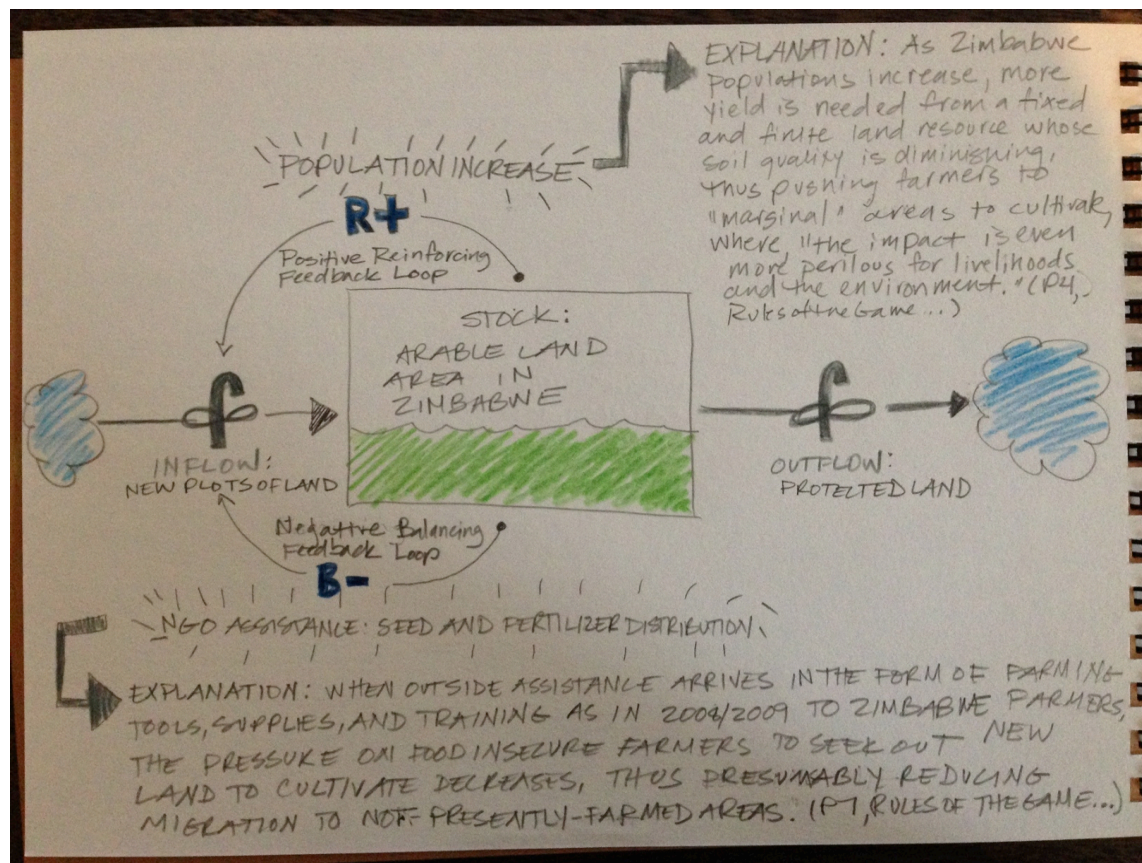 EXPLANATION: As Zimbabwe
populations increase, more
yield is needed from a fixed
and finite land resource whose
soil quality is diminishing,
thus pushing farmers to
"marginal" areas to cultivate,
where "the impact is even
more perilous for livelihoods
and the environment." (P4,
Rules of the Game...)
POPULATION INCREASE
R+
Positive Reinforcing
Feedback Loop
STOCK:
ARABLE LAND
AREA IN
ZIMBABWE
INFLOW:
NEW PLOTS OF LAND
OUTFLOW:
PROTECTED LAND
Negative Balancing
Feedback Loop
B-
NGO ASSISTANCE: SEED AND FERTILIZER DISTRIBUTION
EXPLANATION: WHEN OUTSIDE ASSISTANCE ARRIVES IN THE FORM OF FARMING
TOOLS, SUPPLIES, AND TRAINING AS IN 2008/2009 TO ZIMBABWE FARMERS,
THE PRESSURE ON FOOD INSECURE FARMERS TO SEEK OUT NEW
LAND TO CULTIVATE DECREASES, THUS PRESUMABLY REDUCING
MIGRATION TO NOT-PRESENTLY-FARMED AREAS. (P7, RULES OF THE GAME...)